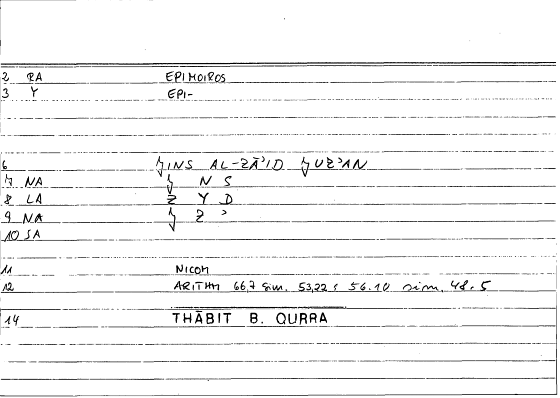 2 RA EPIMOIROS
3 Y EPI-
6 ǦINS AL-ZĀʾID ǦUZʾAN
7 NA Ǧ N S
8 LA Z Y D
9 NA Ǧ Z ʾ
10 SA
11 NICOM
12 ARITHM 66,7 sim. 53,22; 56.10 sim. 48.5
14 THĀBIT B. QURRA